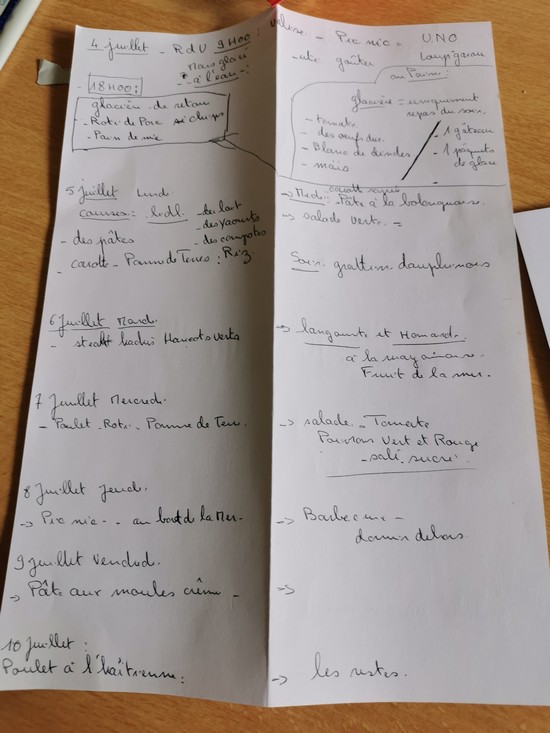 4 juillet - RdV 9H00 : valise - Pic nic - UNO
mais glacé
à l'eau
goûter
18H00 :
au Panier :
glacière de retour
- Roti de Porc chips
- Pain de mie
glacière = uniquement
repas du soir.
- tomate
- des oeufs dur
- Blanc de dindes
- maïs
- 1 gâteau
- 1 pâquets
de glace
5 juillet Lundi
courses : Lidl
- du lait
- des yaourts
- des compotes
- des pâtes
- carotte - Pomme de Terres : Riz
carotte rapée
-> Midi : Pâte à la bolognaise.
-> salade verte =
Soir grattin dauphinois
6 Juillet Mardi
- steak haché Haricots verts
-> langouste et Homard
à la mayonaise
Fruit de la mer.
7 Juillet Mercredi
- Poulet - Roti - Pomme de Terre.
-> salade - Tomate
Poivrons Vert et Rouge
- salé sucré
8 Juillet Jeudi.
-> Pic nic - au bord de la Mer.
-> Barbecue -
dormir dehors
9 juillet Vendredi.
-> Pâte aux moules crême -
->
10 juillet :
Poulet à l'haïtienne :
-> les restes.